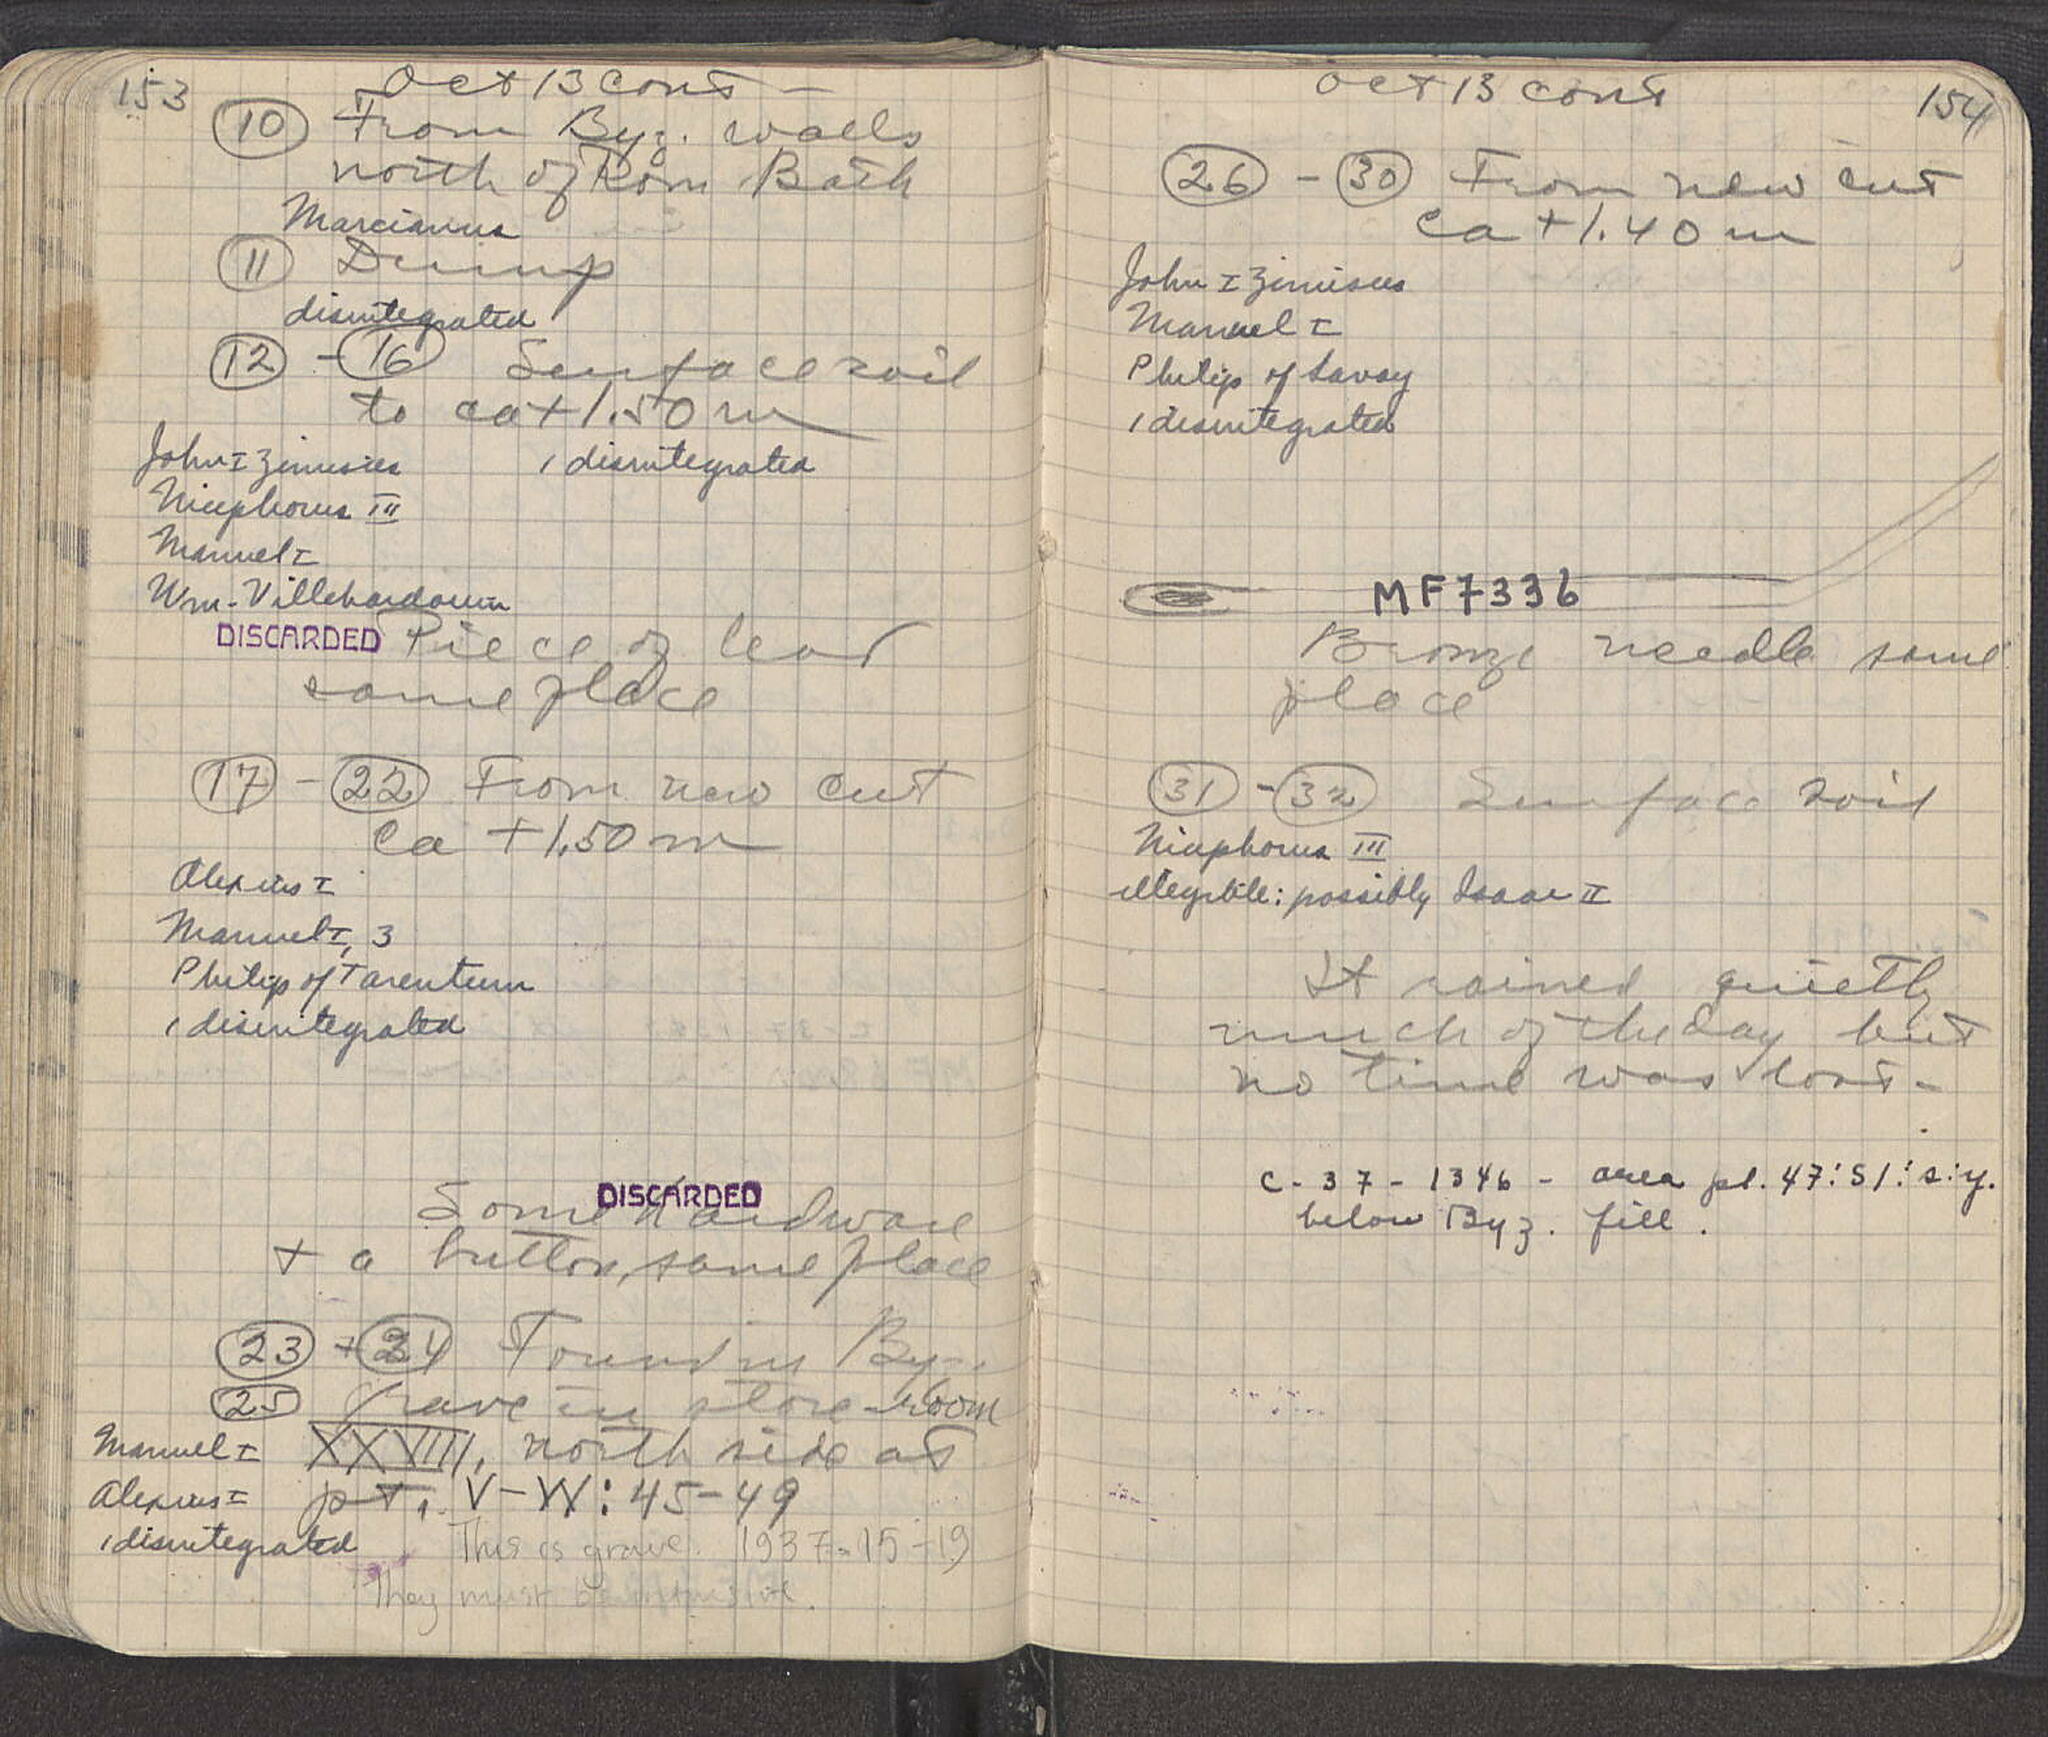 153
Oct 13 cont —
10 From Byz. walls
north of Rom Bath
Marcianus
11 Dump
disintegrated
12 - 16 Surface soil
to ca + 1.50 m
John I Zimisces 1 disintegrated
Nicephorus III
Manuel I
Wm. Villehardouin
DISCARDED Piece of lead
same place
17 - 22 From new cut
ca + 1.50 m
Alexius I
Manuel I, 3
Philip of Tarentum
1 disintegrated
DISCARDED
Some hardware
+ a button, same place
23 + 24 Found in Byz.
25 grave in store-room
Manuel I XXVIII, north side at
Alexius I pt. V-W: 45-49
1 disintegrated This is grave 1937-15-19
They must be intrusive.
Oct 13 cont
154
26 - 30 From new cut
ca + 1.40 m
John I Zimisces
Manuel I
Philip of Savoy
1 disintegrated
MF7336
Bronze needle same
place
31 - 32 Surface soil
Nicephorus III
illegible: possibly Isaac II
It rained quietly
much of the day but
no time was lost -
C-37-1346 - area pl. 47:51:s:y.
below Byz. fill.